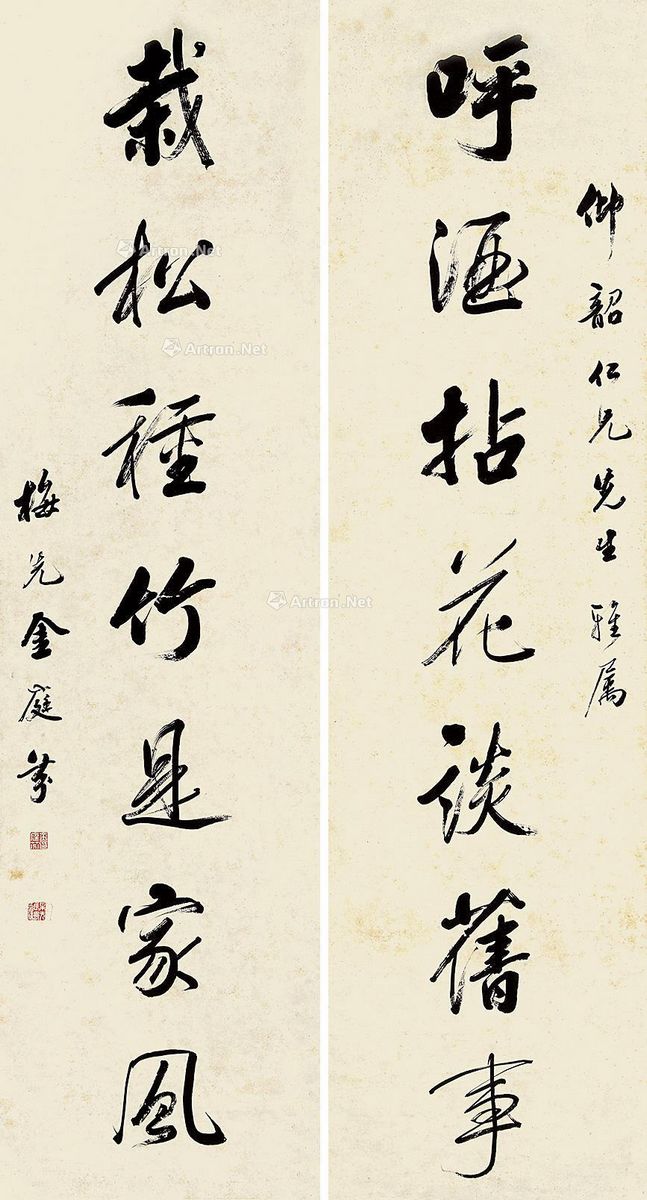 仰韶仁兄先生雅属
呼酒拈花谈舊事
栽松種竹是家風
梅先金庭
Artron.Net
Artron.Net
Artron.Net